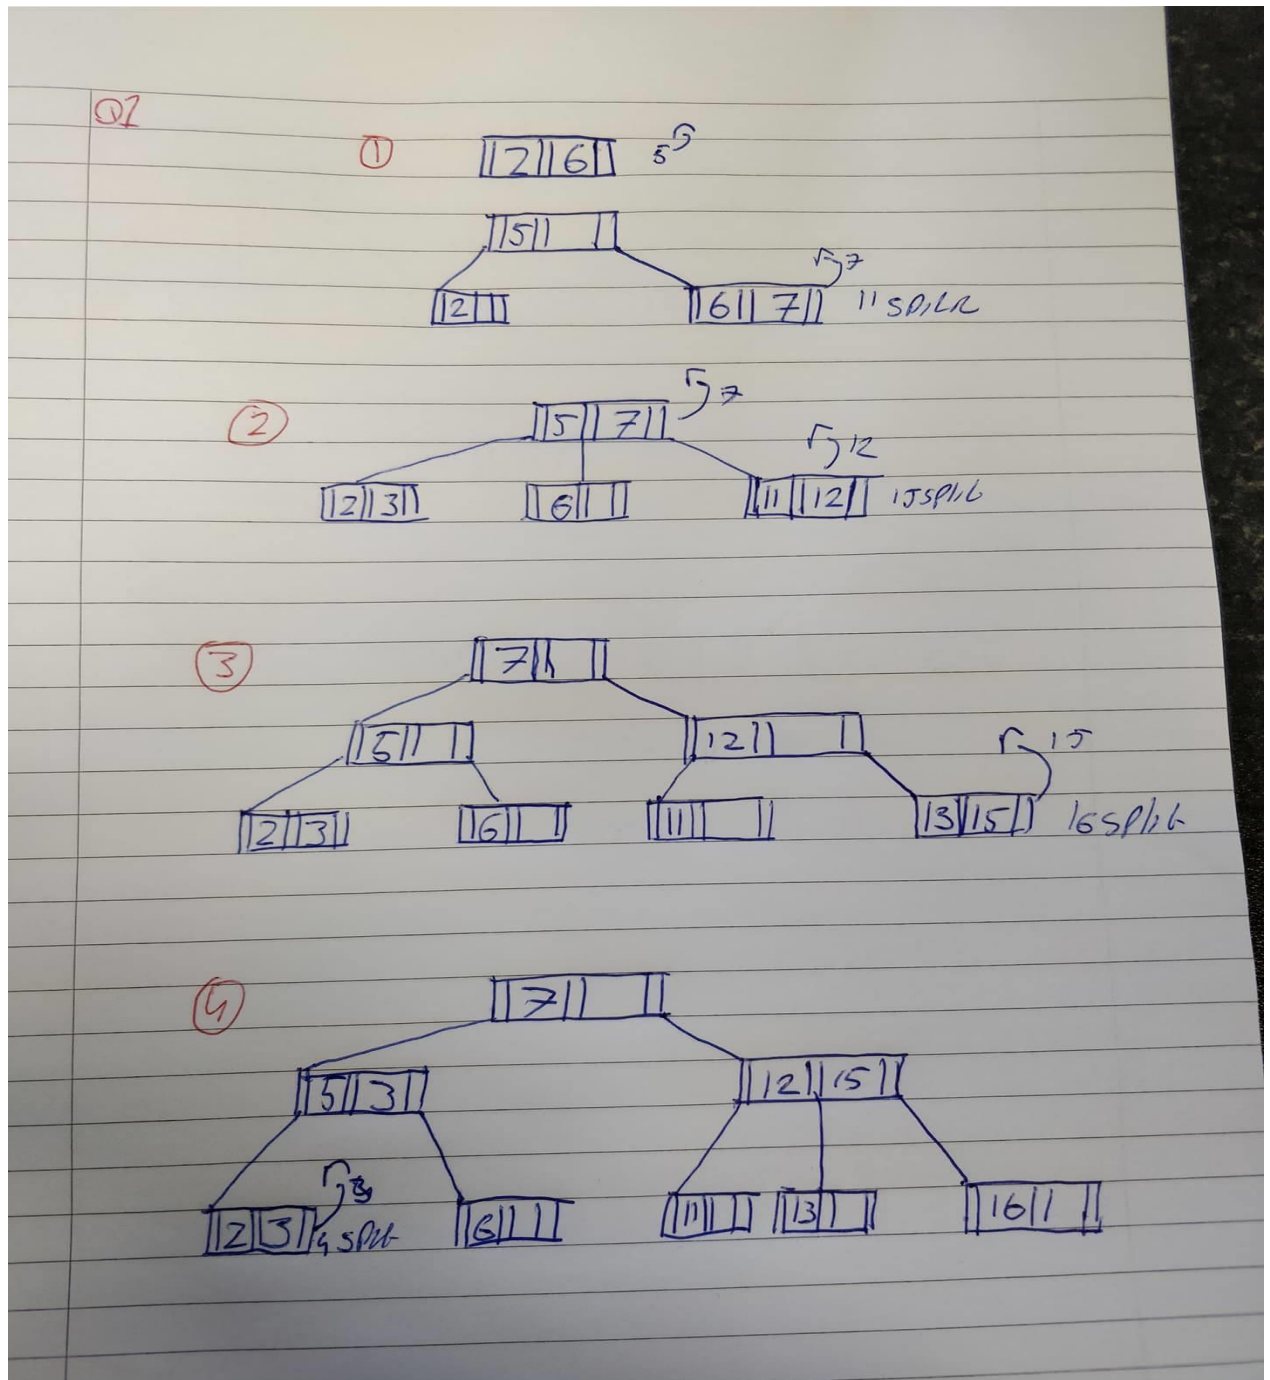 Q1
① 2 6 5
5
7
2 6 7 11 split
② 5 7 7
12
2 3 6 11 12 15 split
③ 7
5 12 15
2 3 6 11 13 15 16 split
④ 7
5 3 12 15
3
2 3 4 split 6 11 13 16